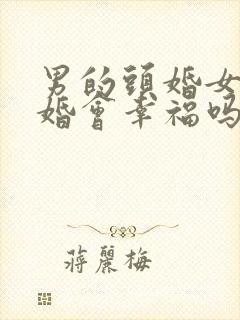 男的頭婚女
婚會幸福吗
蔣麗梅